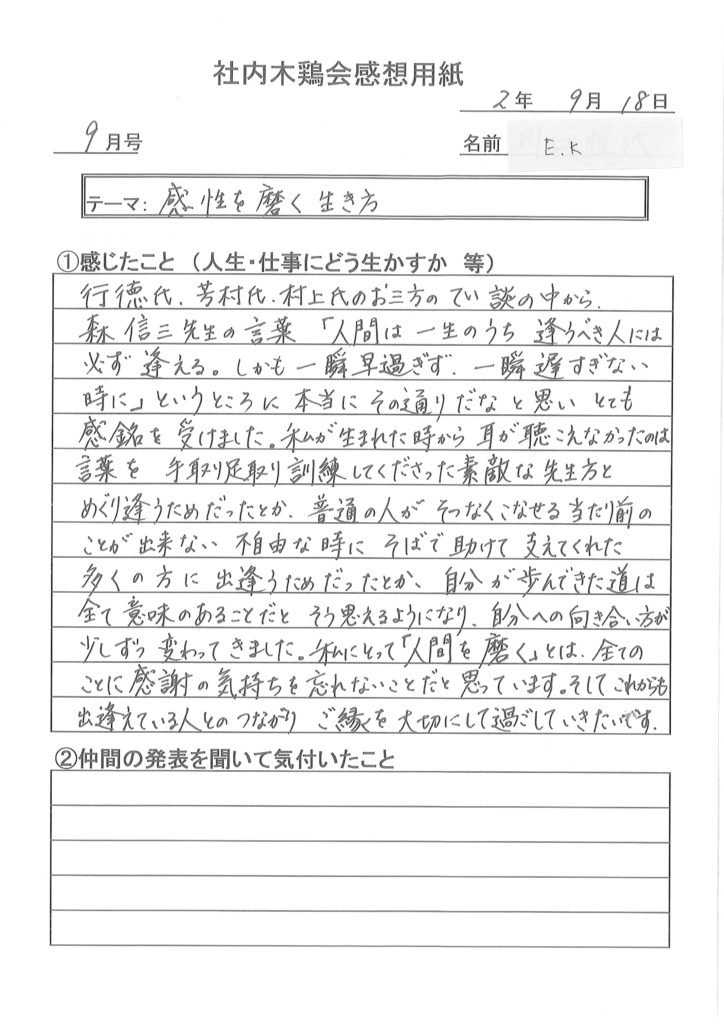 社内木鶏会感想用紙
2年 9月 18日
9月号
名前 E.K
テーマ: 感性を磨く生き方
①感じたこと (人生・仕事にどう生かすか 等)
行徳氏、芳村氏、村上氏のお三方のてい談の中から、
森信三先生の言葉「人間は一生のうち 逢うべき人には
必ず逢える。しかも一瞬早過ぎず、一瞬遅すぎない
時に」というところに 本当に その通りだな と思い とても
感銘を受けました。私が生まれた時から 耳が聴こえなかったのは
言葉を 手取り足取り訓練してくださった素敵な先生方と
めぐり逢うためだったとか、普通の人が そつなくこなせる当たり前の
ことが出来ない 不自由な時に そばで助けて 支えてくれた
多くの方に 出逢うためだったとか、自分が歩んできた道は
全て意味のあることだと そう思えるようになり、自分への向き合い方が
少しずつ 変わってきました。私にとって「人間を磨く」とは、全ての
ことに感謝の気持ちを忘れないことだと思っています。そしてこれからも
出逢えている人とのつながり ご縁を大切にして過ごしていきたいです.
②仲間の発表を聞いて気付いたこと